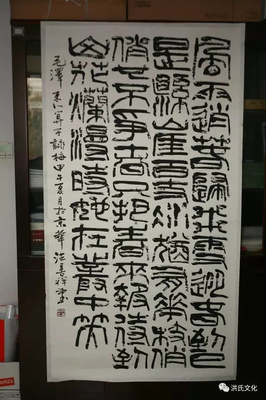 風雨送春歸飛雪迎春到已
是懸崖百丈冰猶有花枝俏
俏也不爭春只把春來報待到
山花爛漫時她在叢中笑
毛澤東卜算子詠梅甲午夏月於京華
洪氏文化